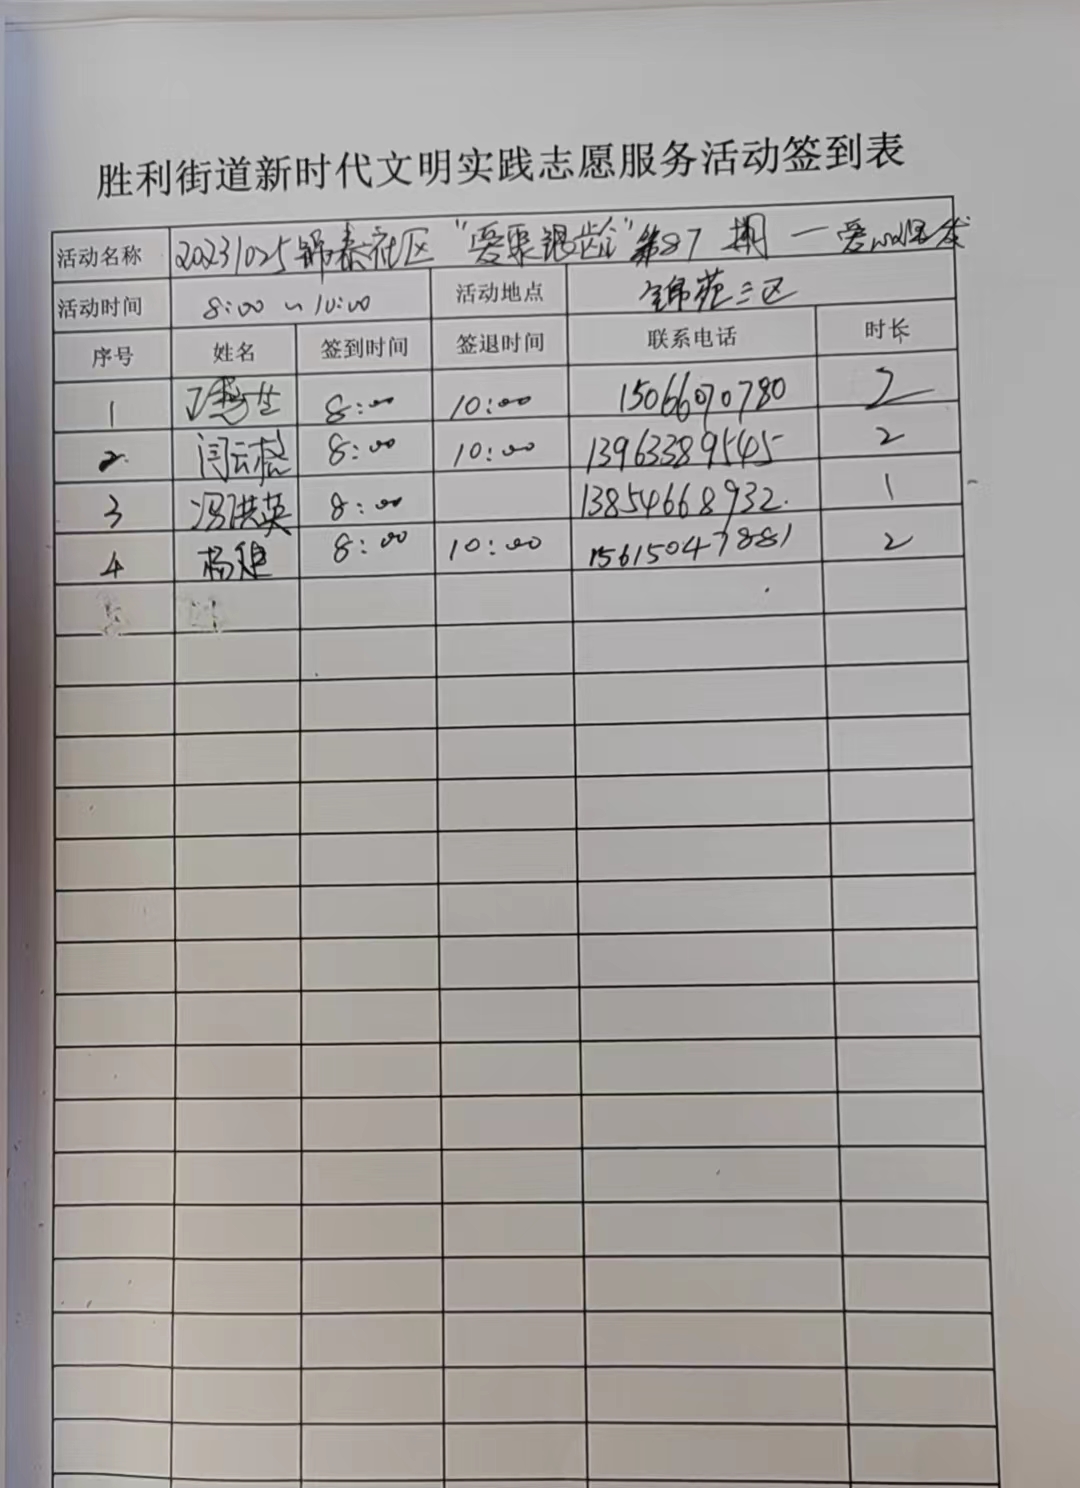 胜利街道新时代文明实践志愿服务活动签到表
活动名称 20231025锦泰社区“爱聚银龄”第87期一爱心理发
活动时间 8:00~10:00 活动地点 锦苑三区
序号 姓名 签到时间 签退时间 联系电话 时长
1 8:00 10:00 15066090780 2
2 闫云 8:00 10:00 13963389545 2
3 冯洪英 8:00 13854668932 1
4 杨健 8:00 10:00 15615047881 2